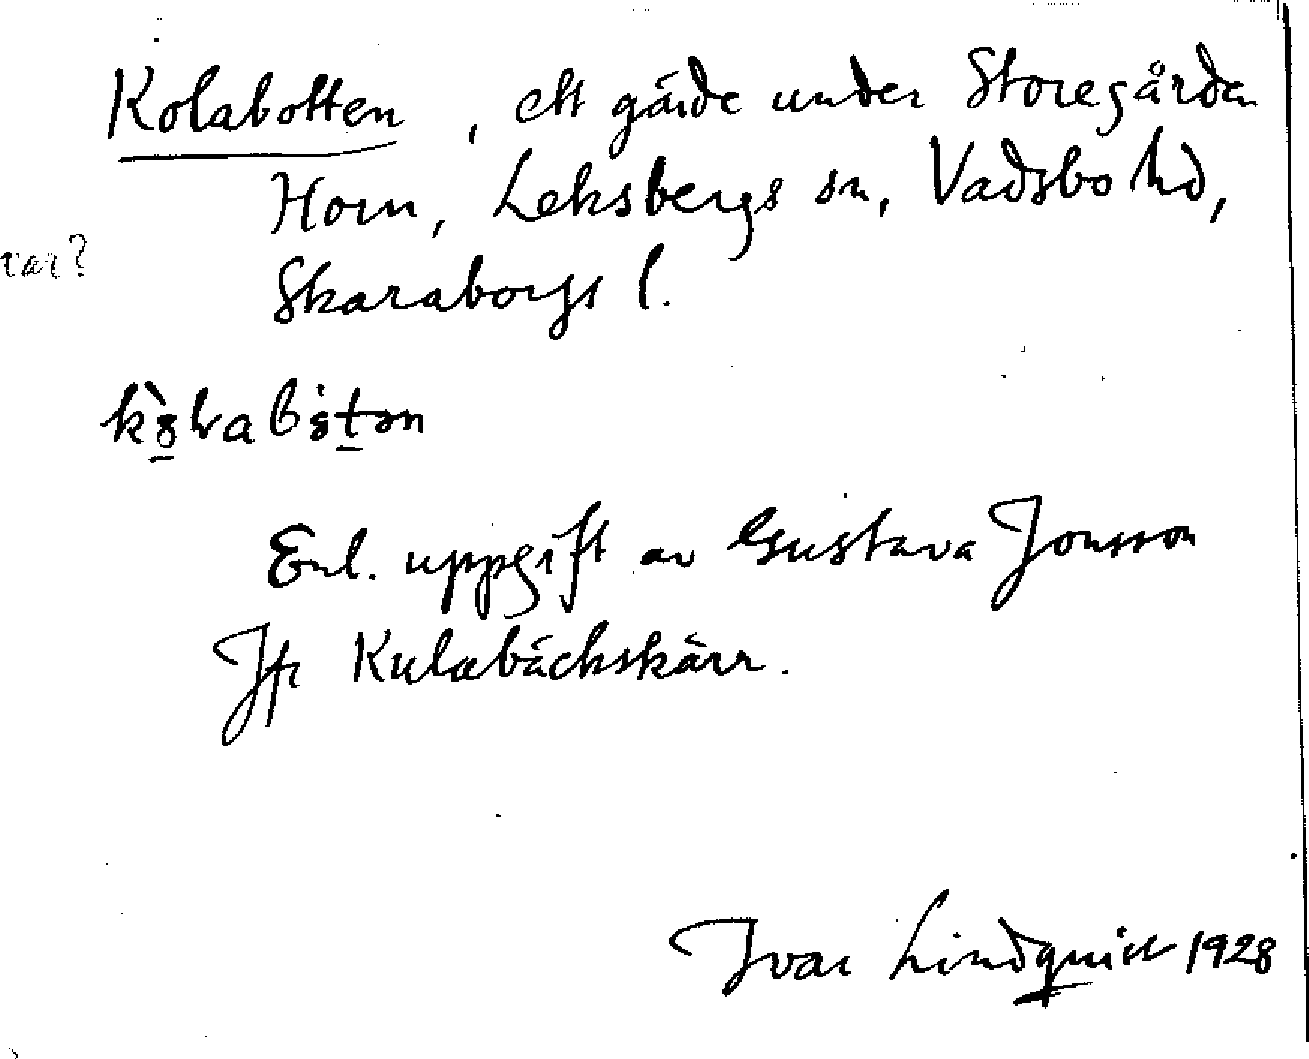 Kolabotten, ett gärde under Storegården
Horn, Leksbergs sn, Vadsbo hd,
var?
Skaraborgs l.
Enl. uppgift av Gustava Jonsson
Jfr Kulabäckskärr.
Ivar Lindquist 1928